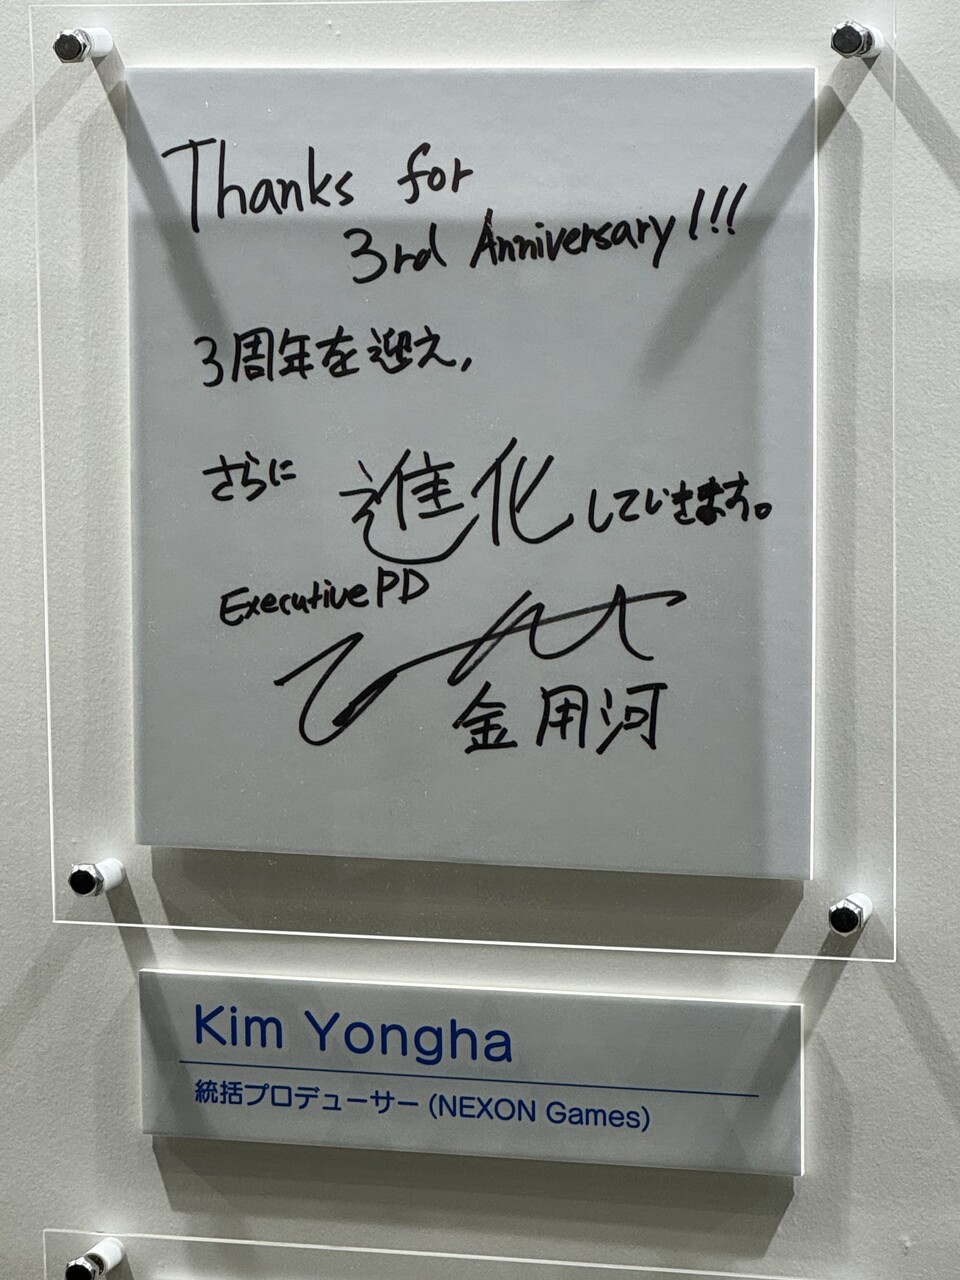 Thanks for
3rd Anniversary!!!
3周年を迎え,
さらに 進化していきます。
Executive PD
金用河
Kim Yongha
統括プロデューサー (NEXON Games)